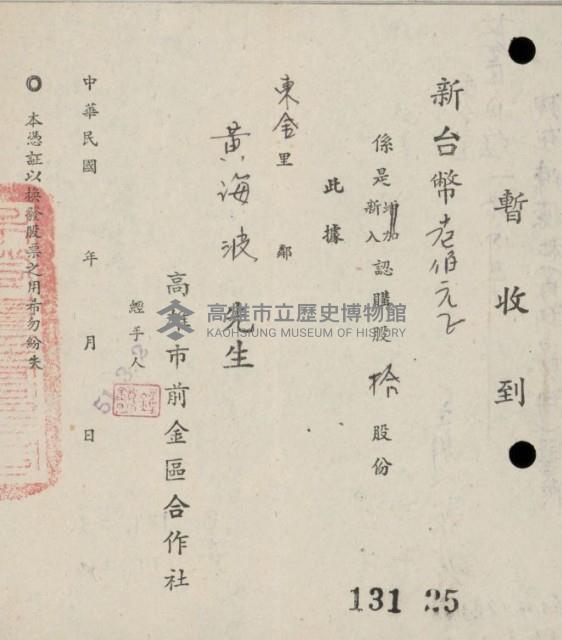 暫收到
新台幣壱佰元正
係是
增加
新入
認購股拾股份
此據
東金里 鄰
黃海波先生
高雄市前金區合作社
經手人
51.3.3
中華民國 年 月 日
◎本憑証以換發股票之用希勿紛失
131 25
高雄市立歷史博物館
KAOHSIUNG MUSEUM OF HISTORY